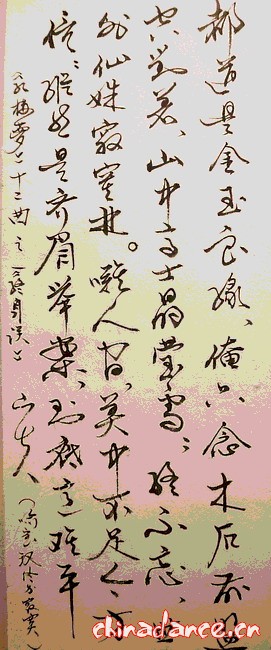 都道是金玉良缘、俺只念木石前盟
空对着、山中高士晶莹雪；终不忘、世
外仙姝寂寞林。嘆人间、美中不足今方
信：纵然是齐眉举案、到底意难平
《红楼梦》十二曲之《终身误》
chinadance.cn